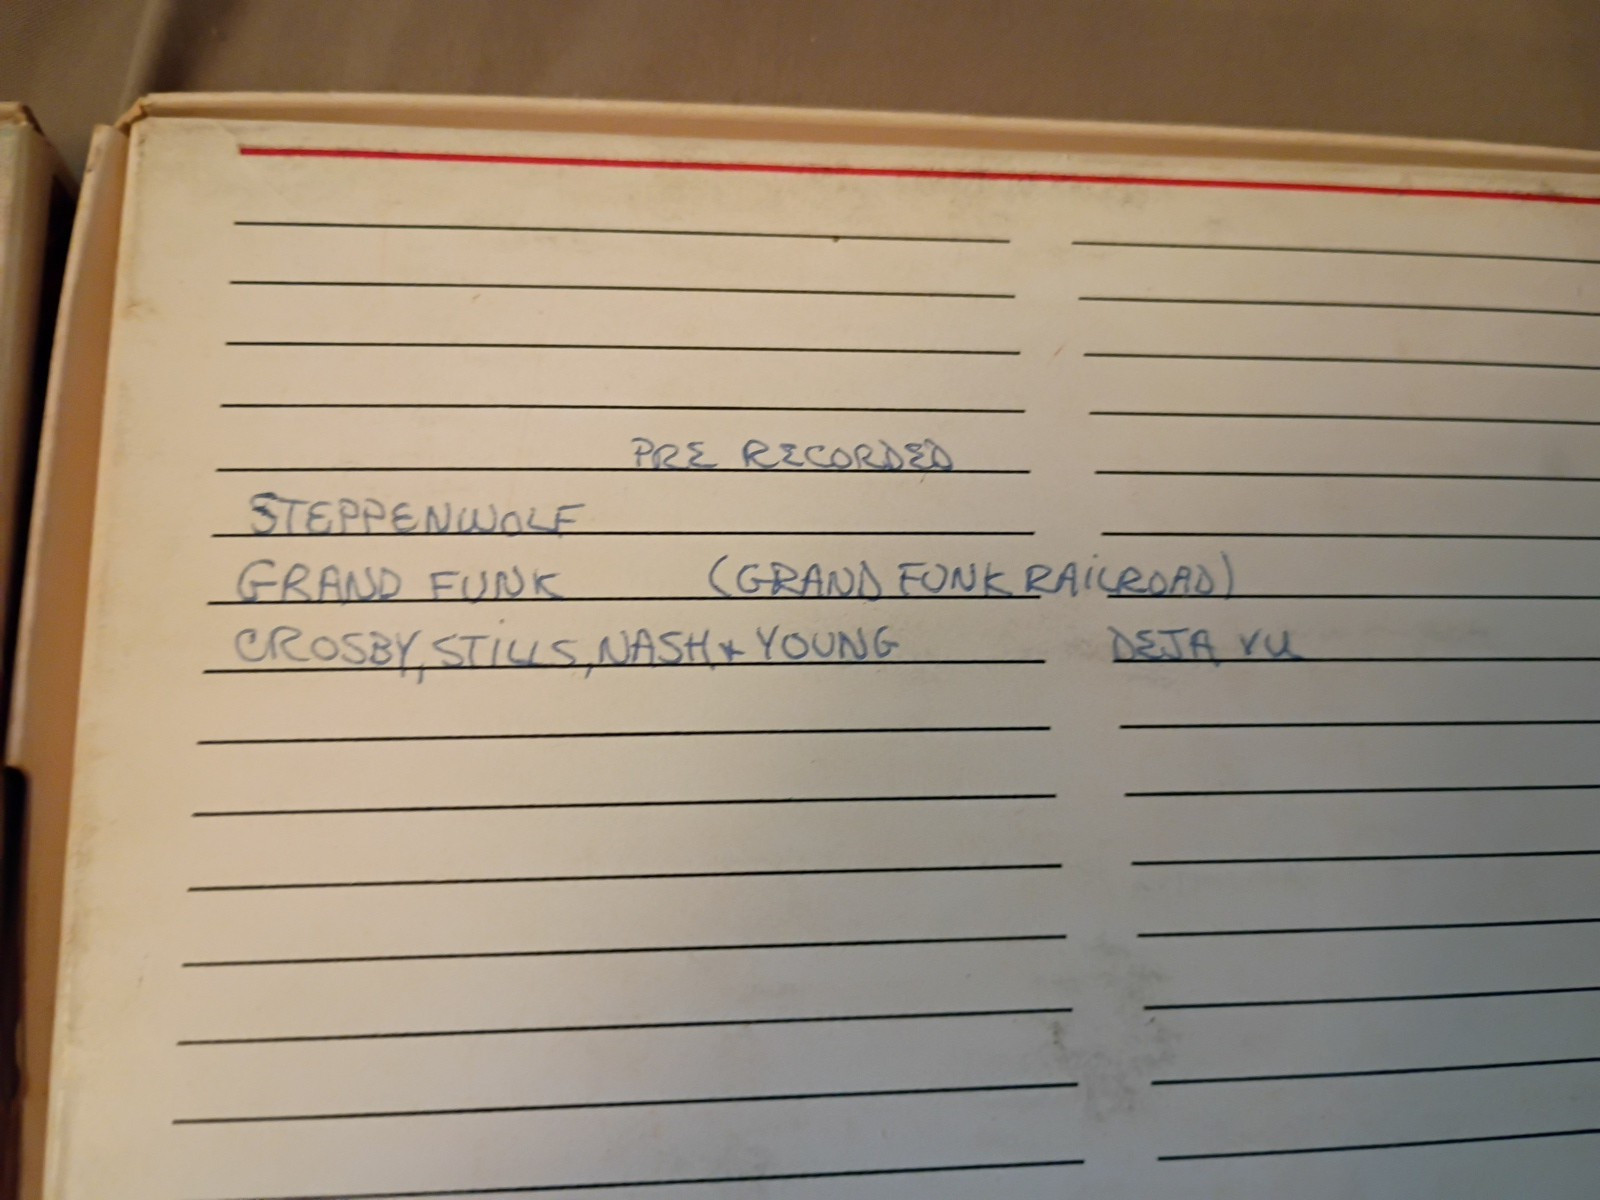 PRE RECORDED
STEPPENWOLF
GRAND FUNK (GRAND FUNK RAILROAD)
CROSBY, STILLS, NASH & YOUNG DEJA VU